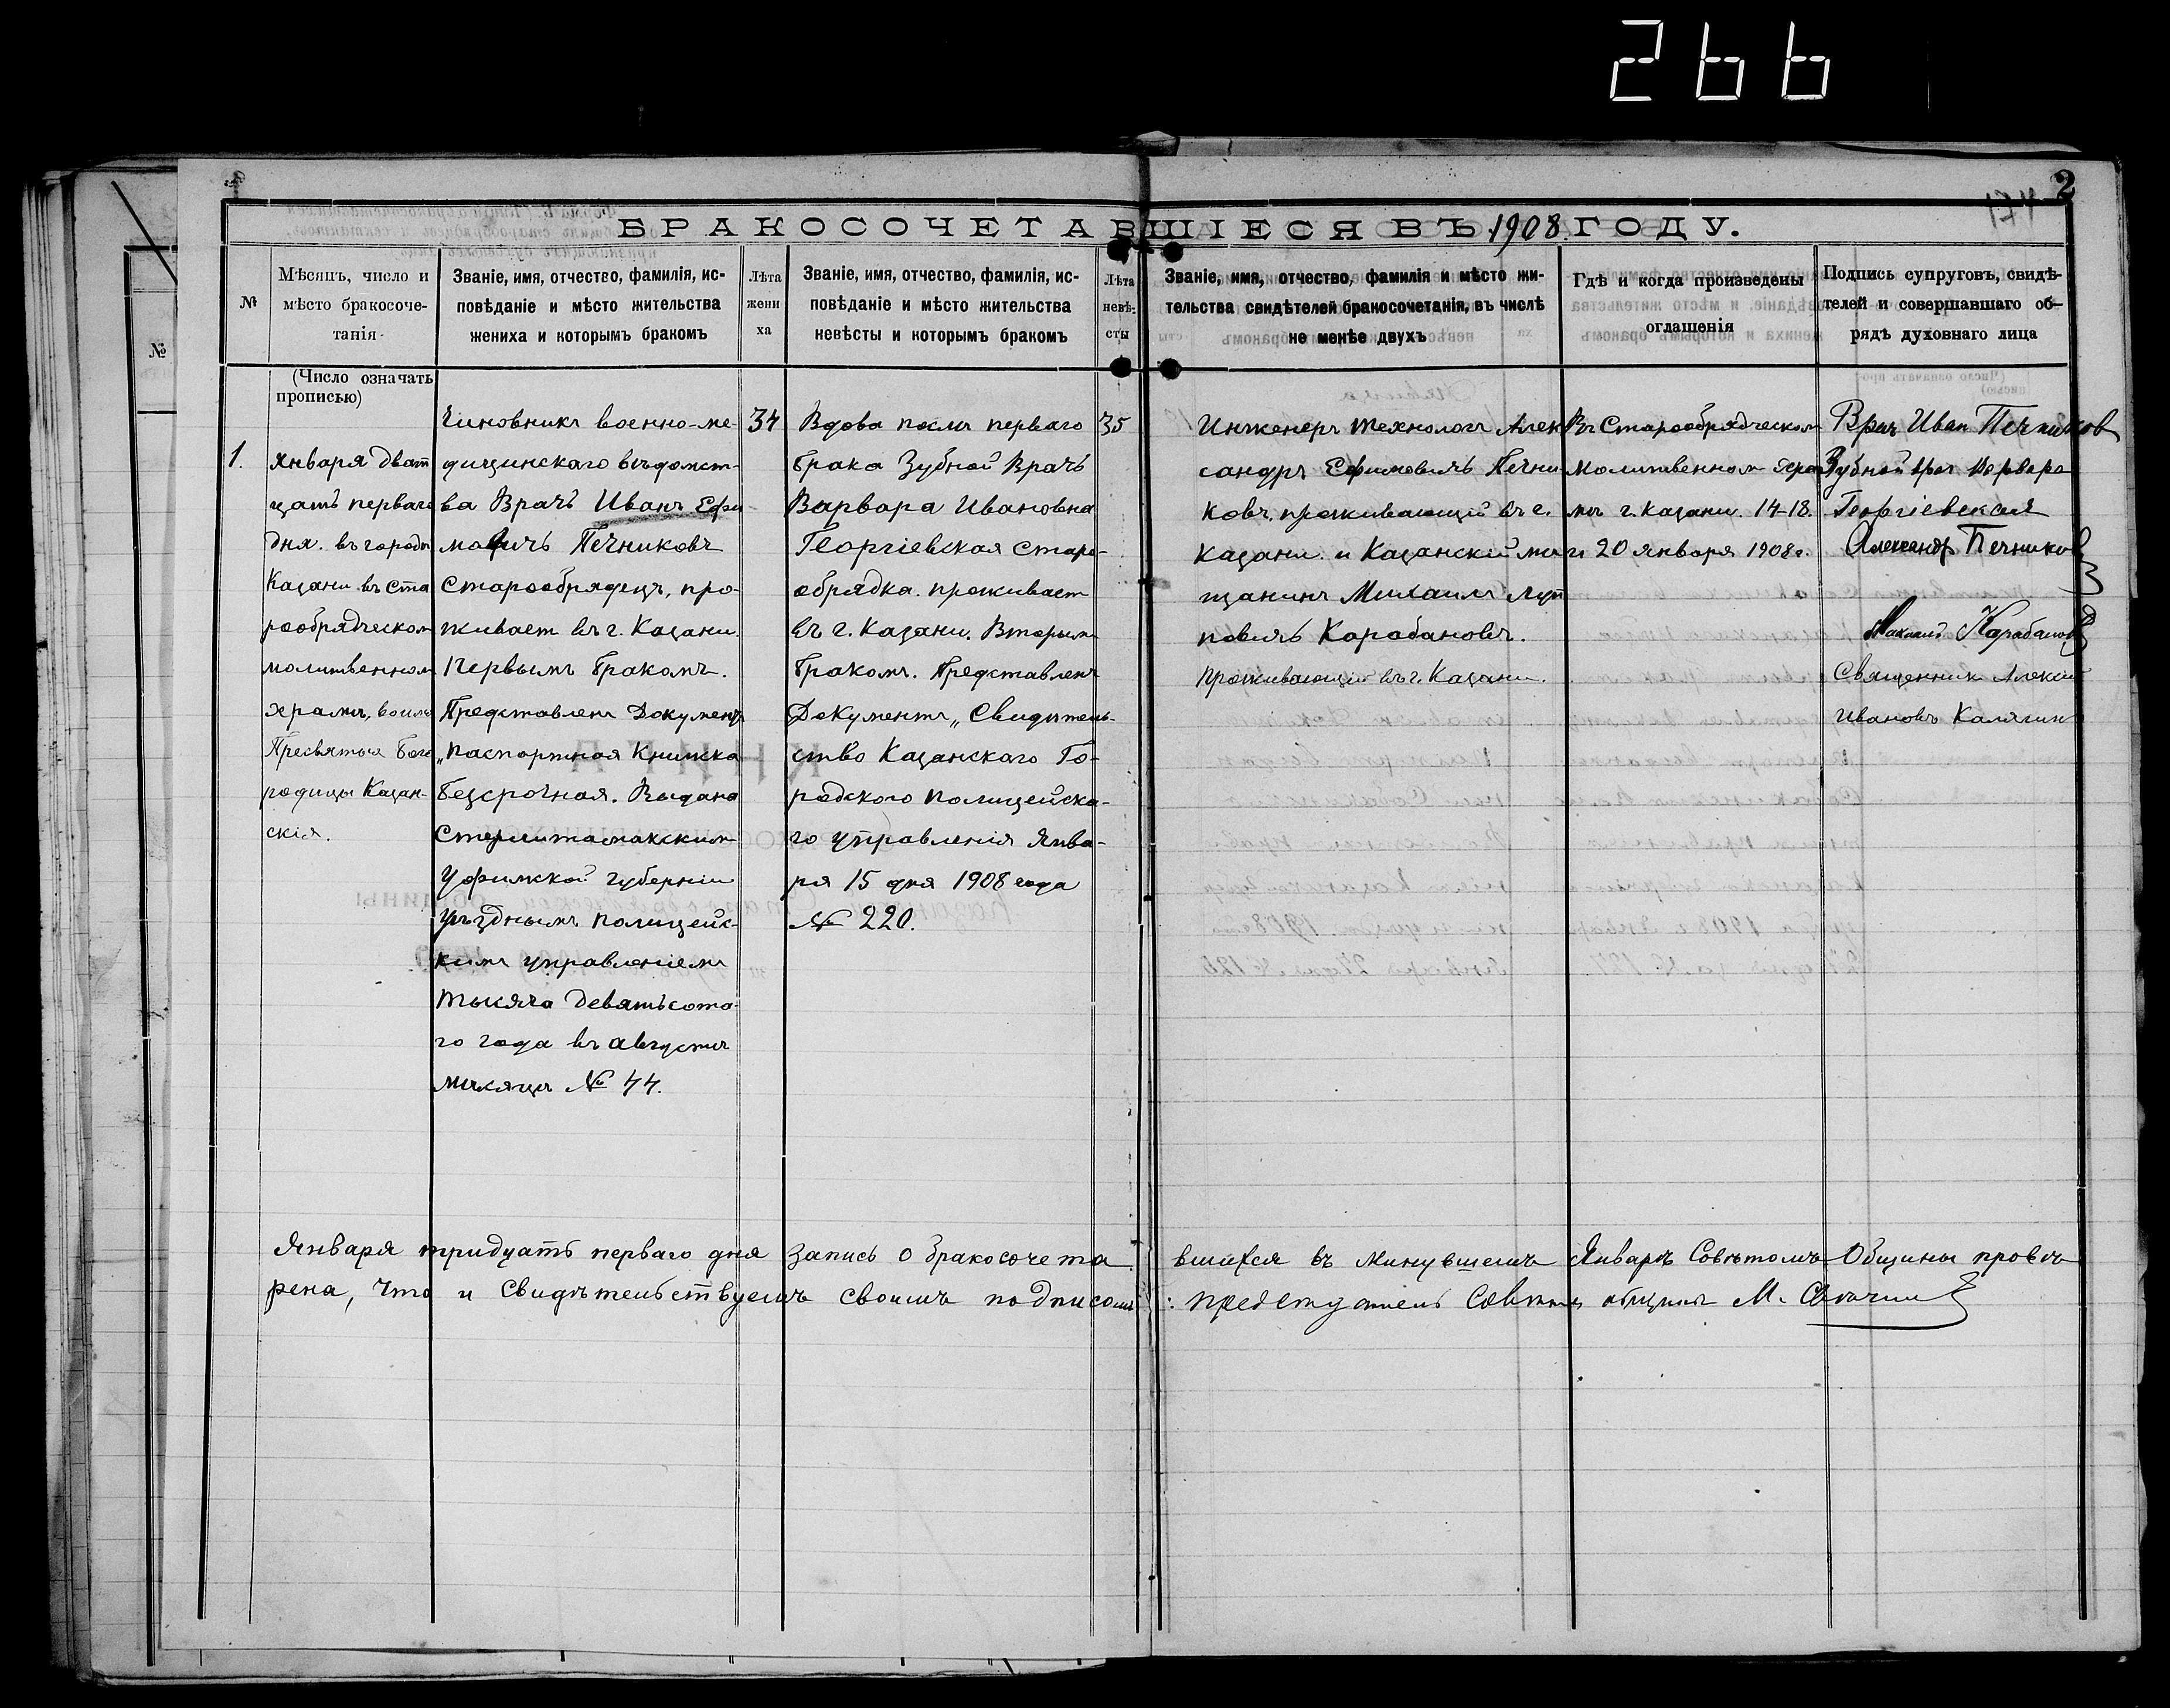 266
2
БРАКОСОЧЕТАВШІЕСЯ ВЪ 1908 ГОДУ.
№
Мѣсяцъ, число и
мѣсто бракосоче-
танія
Званіе, имя, отчество, фамилія, ис-
повѣданіе и мѣсто жительства
жениха и которымъ бракомъ
Лѣта
жени
ха
Званіе, имя, отчество, фамилія, ис-
повѣданіе и мѣсто жительства
невѣсты и которымъ бракомъ
Лѣта
невѣ-
сты
Званіе, имя, отчество, фамилія и мѣсто жи-
тельства свидѣтелей бракосочетанія, въ числѣ
не менѣе двухъ
Гдѣ и когда произведены
оглашенія
Подпись супруговъ, свидѣ-
телей и совершавшаго об-
рядъ духовнаго лица
(Число означать
прописью)
1.
Января дват
цать перваго
дня. въ городѣ
Казани въ ста
рообрядческом
молитвенном
храмѣ, во имя
Пресвятыя Бого
родицы Казан-
скія.
Чиновникъ военно-ме-
дицинскаго вѣдомст-
ва Врачъ Иванъ Ефи
мовичъ Печниковъ
Старообрядецъ, про-
живает въ г. Казани.
Первымъ бракомъ.
Представленъ Документъ
„Паспортная Книжка
безсрочная. Выдана
Стерлитамакским
Уфимской губерніи
уѣзднымъ полицейс-
кимъ управленіемъ
тысяча девятьсота-
го года въ августѣ
мѣсяцѣ № 44.
34
Вдова послѣ перваго
брака Зубной Врачъ
Варвара Ивановна
Георгіевская старо-
обрядка. проживает
въ г. Казани. Вторым
бракомъ. Представленъ
Документъ „Свидѣтель-
ство Казанскаго Го-
родского полицейска-
го управленія Янва-
ря 15 дня 1908 года
№ 220.
35
Инженеръ технологъ Алек
сандръ Ефимовичъ Печни-
ковъ. проживающій въ г.
Казани. и Казанскій мѣ
щанинъ Михаилъ Луп
повичъ Карабановъ.
Проживающій въ г. Казани.
Въ Старообрядческом
молитвенном хра
мѣ г. Казани. 14-18.
и 20 января 1908 г.
Врач Иван Печников
Зубной врач Варвара
Георгіевская
Александр Печников
Карабанов
Священник Алексій
Ивановъ Калягин
Января тридцать перваго дня запись о бракосочета
вшихся въ минувшемъ Январѣ Совѣтомъ Общины провѣ
рена, что и свидѣтельствуемъ своимъ подписом
: председатель Совѣта общины М.